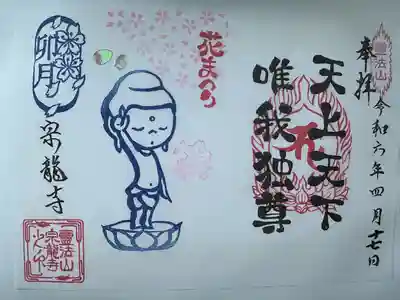 靈法山
奉拝
令和六年四月十七日
天上天下
唯我独尊
花まつり
卯月
宗龍寺
靈法山
宗龍寺